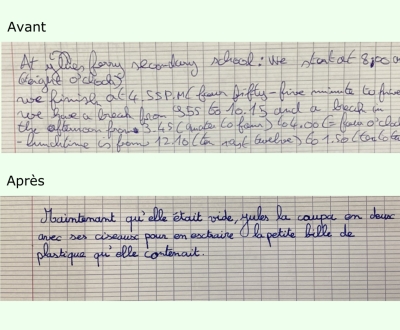 Avant
At Jules ferry secondary school: we start at 8,00
(eight o'clock)
we finish at 4.55PM (four fifty-five minute to five
we have a break from 9.55 to 10.15 and a break in
the afternoon from 3.45 (quater to four) to 4.00 (= four o'clock
- lunchtime is from 12.10 (ten past twelve) to 1.50 (ten to two
Après
Maintenant qu'elle était vide, jules la coupa en deux
avec ses ciseaux pour en esctraire la petite bille de
plastique qu'elle contenait.